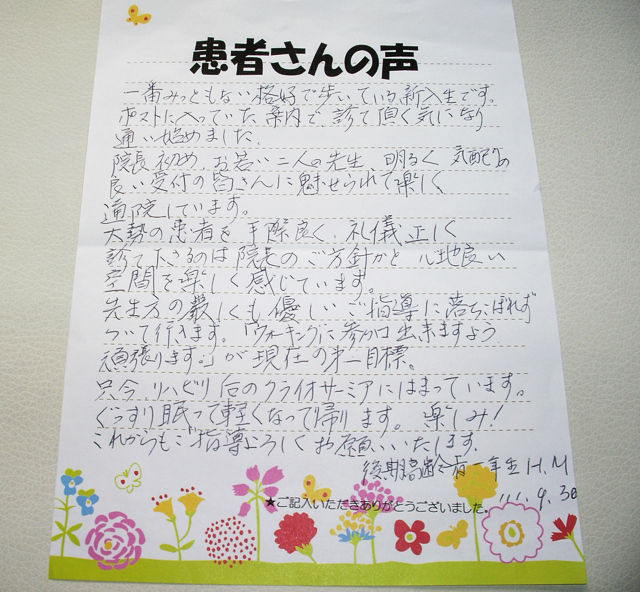 患者さんの声
一番みっともない格好で歩いている新入生です。
ポストに入っていた案内で、診て頂く気になり
通い始めました。
院長初め、お若い二人の先生、明るく気配りの
良い受付の皆さんに魅せられて楽しく
通院しています。
大勢の患者を手際良く、礼儀正しく
診て下さるのは院長のご方針かと心地良い
空間を楽しく感じています。
先生方の厳しくも優しいご指導に落ちこぼれず
ついて行きます。「ウォーキングに参加出来ますよう
頑張ります。」が現在の第一目標。
只今、リハビリ后のクライオサーミアにはまっています。
ぐっすり眠って軽くなって帰ります。楽しみ!
これからもご指導よろしくお願いいたします。
後期高齢者一年生 H.M
'11.9.30
★ご記入いただきありがとうございました。